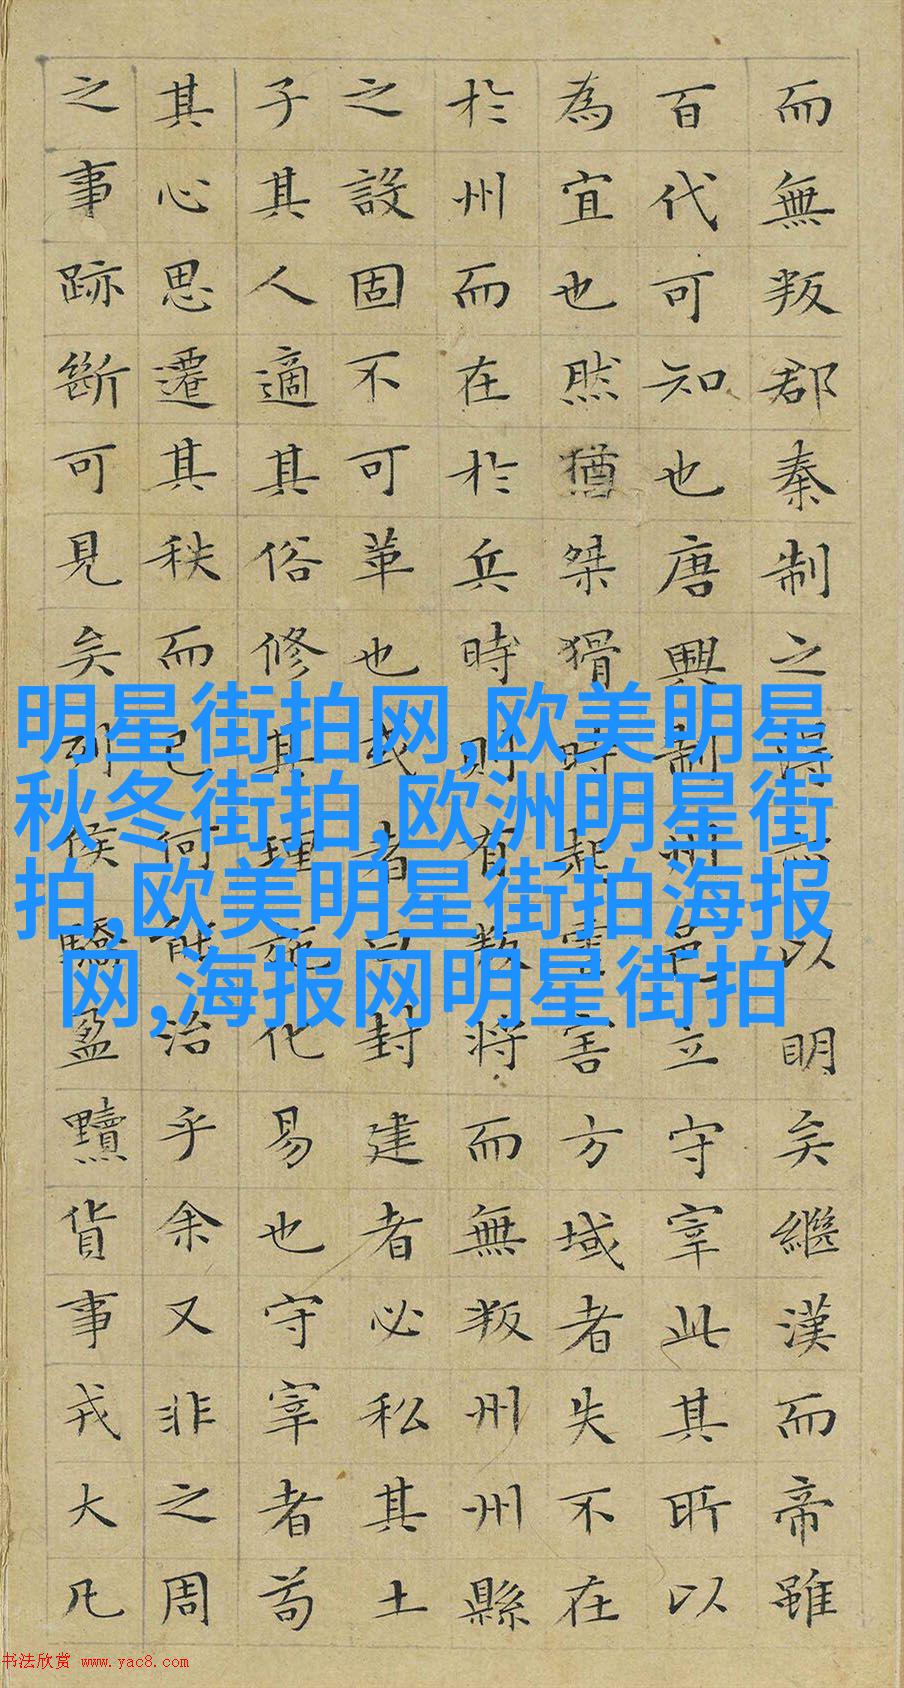 而無叛郡秦制之得亦以明矣繼漢而帝雖
百代可知也唐興制州邑立守宰此其所以
為宜也然猶桀猾時起虐害方域者失不在
於州而在於兵時則有叛將而無叛州州縣
之設固不可革也或者曰封建者必私其土
子其人適其俗修其理施化易也守宰者苟
其心思遷其秩而已何能治乎余又非之周
之事跡斷可見矣列侯驕盈黷貨事戎大凡
明星街拍网,欧美明星
秋冬街拍,欧洲明星街
拍,欧美明星街拍海报
网,海报网明星街拍
书法欣赏 www.yac8.com